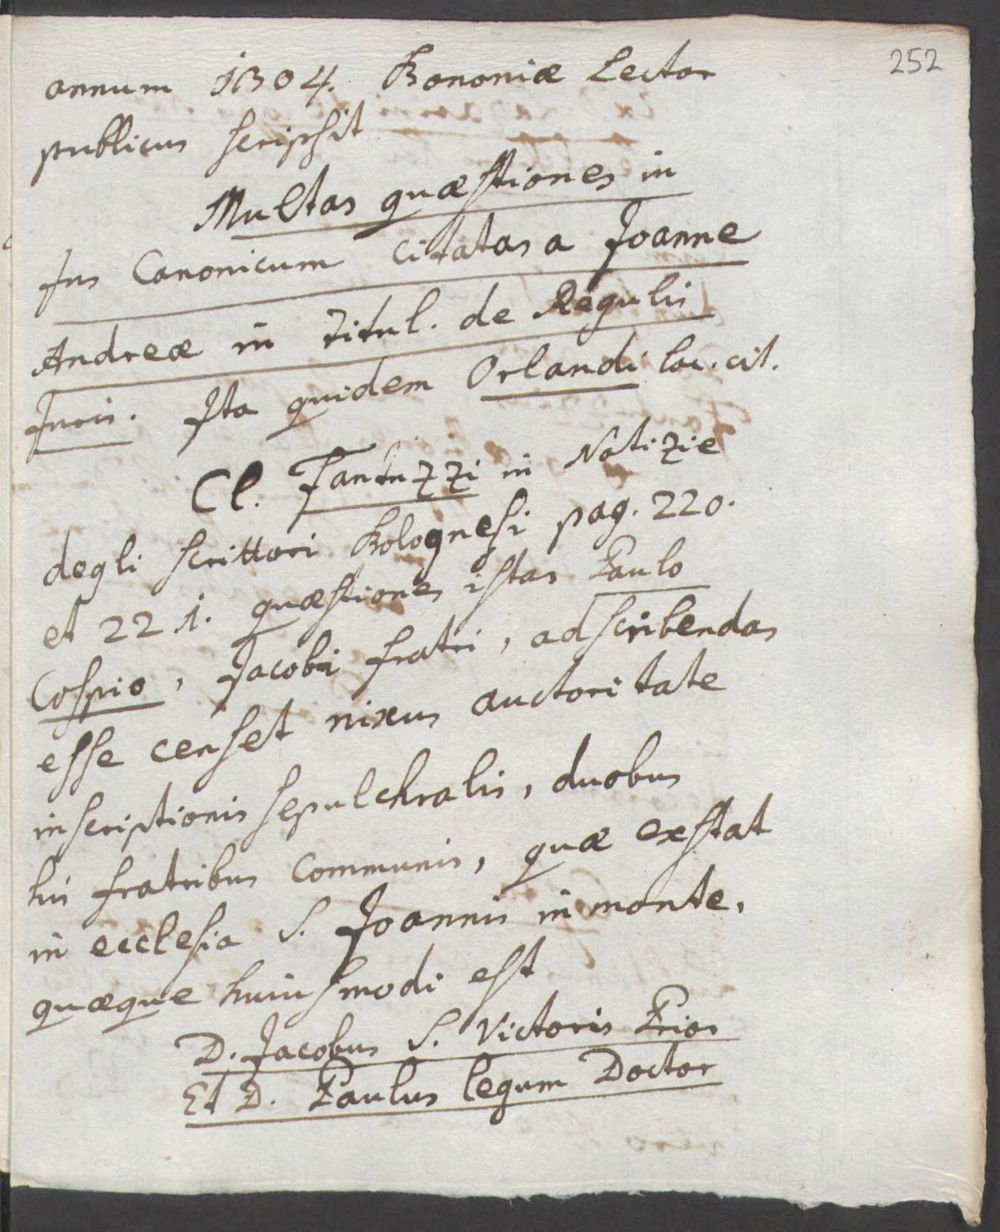 252
annum 1304. Bononiæ Lector
publicus scripsit
Multas quæstiones in
Jus Canonicum citatas a Joanne
Andreæ in titul. de Regulis
Juris. Ita quidem Orlandi loc. cit.
Cl. Fantuzzi in Notizie
degli scrittori Bolognesi pag. 220.
et 221. quæstiones istas Paulo
Cospio, Jacobi fratri, adscribendas
esse censet nixus auctoritate
inscriptionis sepulchralis, duobus
his fratribus communis, quæ exstat
in ecclesia S. Joannis in monte,
quæque huiusmodi est
D. Jacobus S. Victoris Prior
Et D. Paulus legum Doctor